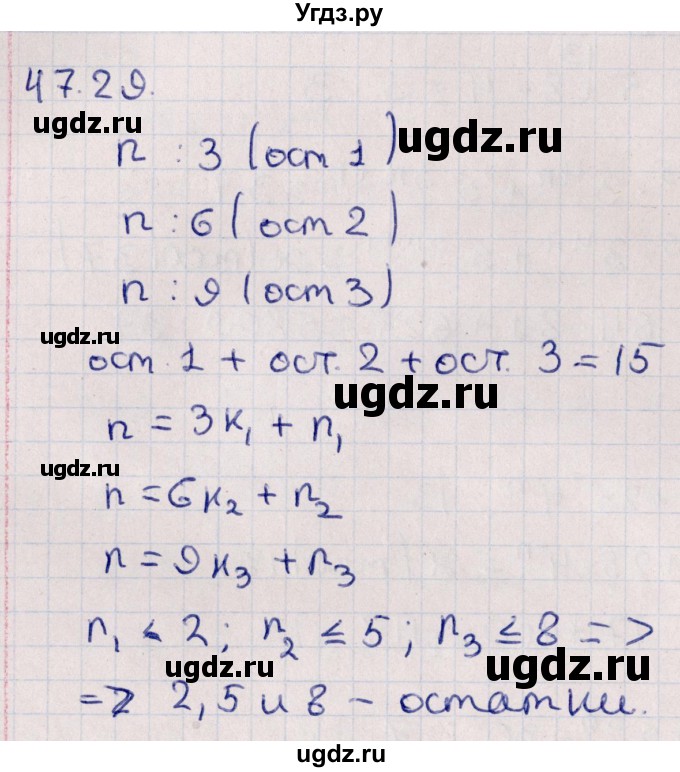 Угдз.ру
47.29.
ugdz.ru
n : 3 (ост 1)
ugdz.ru
n : 6 (ост 2)
n : 9 (ост 3)
ugdz.ru
ост 1 + ост. 2 + ост. 3 = 15
ugdz.ru
n = 3к₁ + n₁
ugdz.ru
n = 6к₂ + n₂
n = 9к₃ + n₃
n₁ ≤ 2; n₂ ≤ 5; n₃ ≤ 8 =>
ugdz.ru
ugdz.ru
=> 2, 5 и 8 - остатки.
ugdz.ru